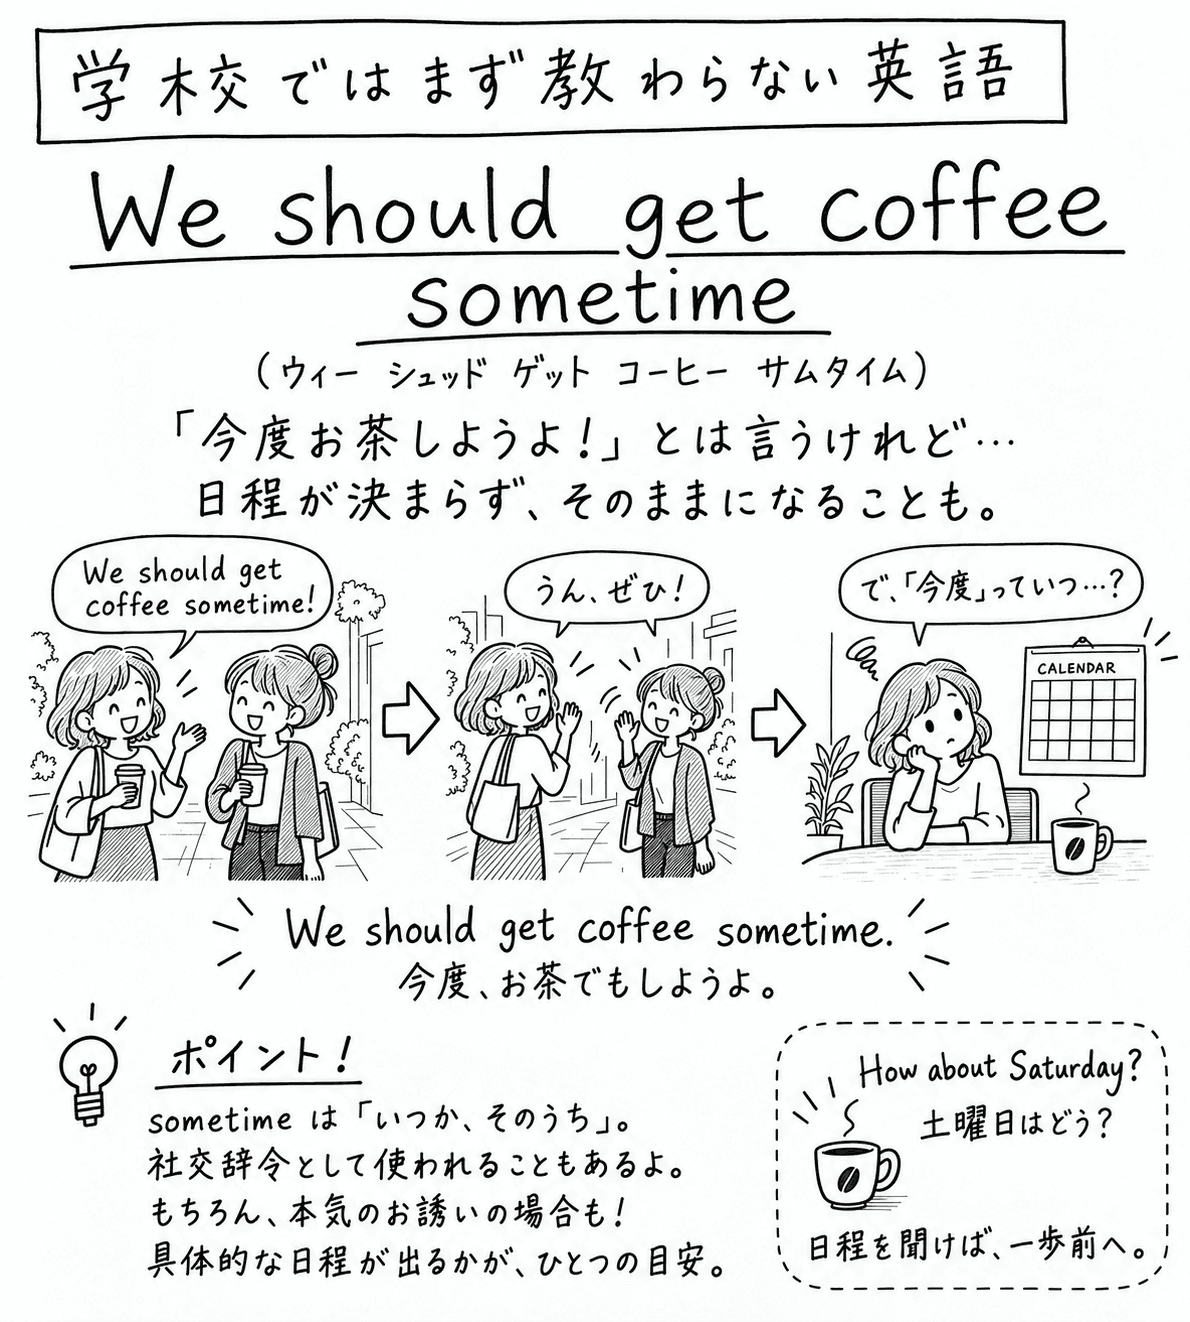 学校ではまず教わらない英語
We should get coffee
sometime
(ウィー シュッド ゲット コーヒー サムタイム)
「今度お茶しようよ!」とは言うけれど…
日程が決まらず、そのままになることも。
We should get
coffee sometime!
うん、ぜひ!
で、「今度」っていつ…?
CALENDAR
We should get coffee sometime.
今度、お茶でもしようよ。
ポイント!
sometime は「いつか、そのうち」。
社交辞令として使われることもあるよ。
もちろん、本気のお誘いの場合も!
具体的な日程が出るかが、ひとつの目安。
How about Saturday?
土曜日はどう?
日程を聞けば、一歩前へ。